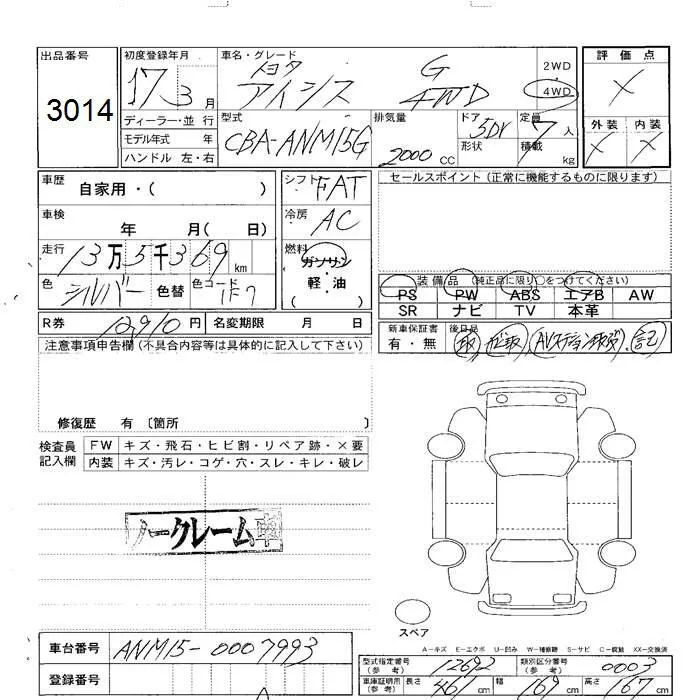 出品番号
3014
初度登録年月
17 3 月
ディーラー・並 行
モデル年式 年
ハンドル 左・右
車名・グレード
トヨタ
アイシス G 4WD
2WD
4WD
型式
CBA-ANM15G
排気量
2000 CC
ドア
5Dr
形状
定員
7 人
積載
kg
評 価 点
×
外装 内装
× ×
車歴
自家用・( )
車検
年 月( 日)
走行
13万5千369 km
色
シルバー
色替
色コード
1F7
シフト
FAT
冷房
AC
燃料
ガソリン
軽・油
( )
R券 12,910 円
名変期限 月 日
セールスポイント (正常に機能するものに限ります)
装 備 品 (純正品に限り○をつけてください)
PS PW ABS エアB AW
SR ナビ TV 本革
新車保証書
有・無
後日品
取
記
注意事項申告欄 (不具合内容等は具体的に記入して下さい)
修復歴 有 〔箇所 〕
検査員
記入欄
FW キズ・飛石・ヒビ割・リペア跡・×要
内装 キズ・汚レ・コゲ・穴・スレ・キレ・破レ
ノークレーム車
スペア
A-キズ E-エクボ U-凹み W-補修跡 S-サビ C-腐触 XX-交換済
車台番号
ANM15-0007993
登録番号
型式指定番号
(参 考)
12692
類別区分番号
(参 考)
0003
車庫証明用
(参 考)
長さ 461 cm
幅 169 cm
高さ 167 cm